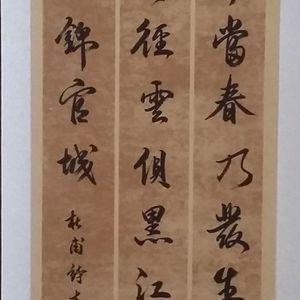 當春乃發生
徑雲俱黑江
錦官城
杜甫詩